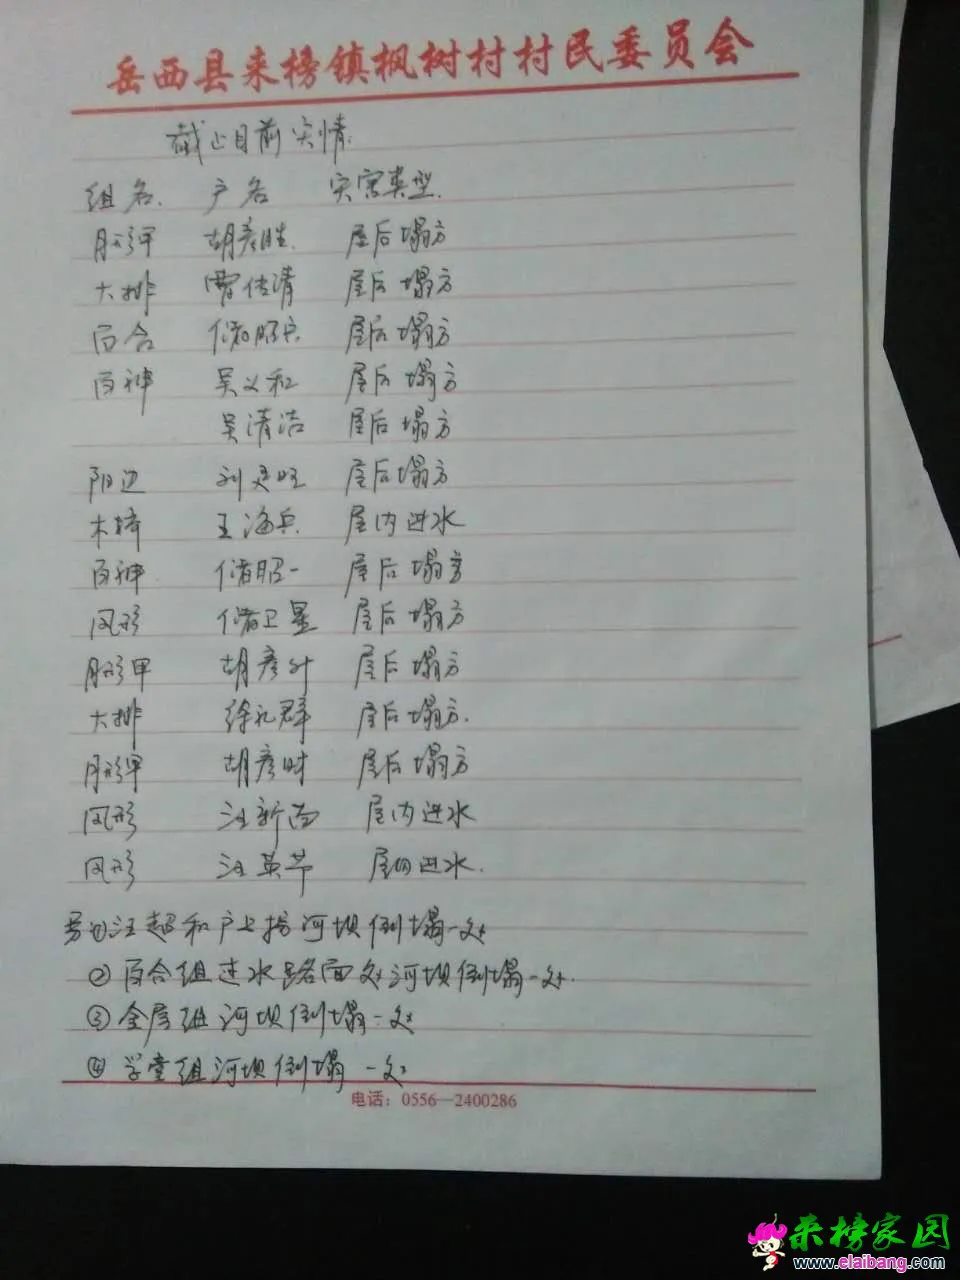 岳西县来榜镇枫树村村民委员会
截止目前灾情:
组名. 户名 灾害类型.
胡彦胜. 屋后塌方
大排 曹传清 屋后塌方
百合 储昭兵 屋后塌方
百神 吴义和 屋后塌方
吴清洁 屋后塌方
阳边 刘 旺 屋后塌方
木梓 王海兵 屋内进水
百神 储昭一 屋后塌方
凤形 储卫星 屋后塌方
形甲 胡彦 屋后塌方
大排 徐礼群 屋后塌方.
胡彦时 屋后塌方
凤形 汪新苗 屋内进水
凤形 汪英节 屋内进水.
另①汪超和户上 河坝倒塌一处
②百合组过水路面处河坝倒塌一处.
③全屋组河坝倒塌一处
④学堂组河坝倒塌一处
电话：0556—2400286
来榜家园
www.elaibang.com